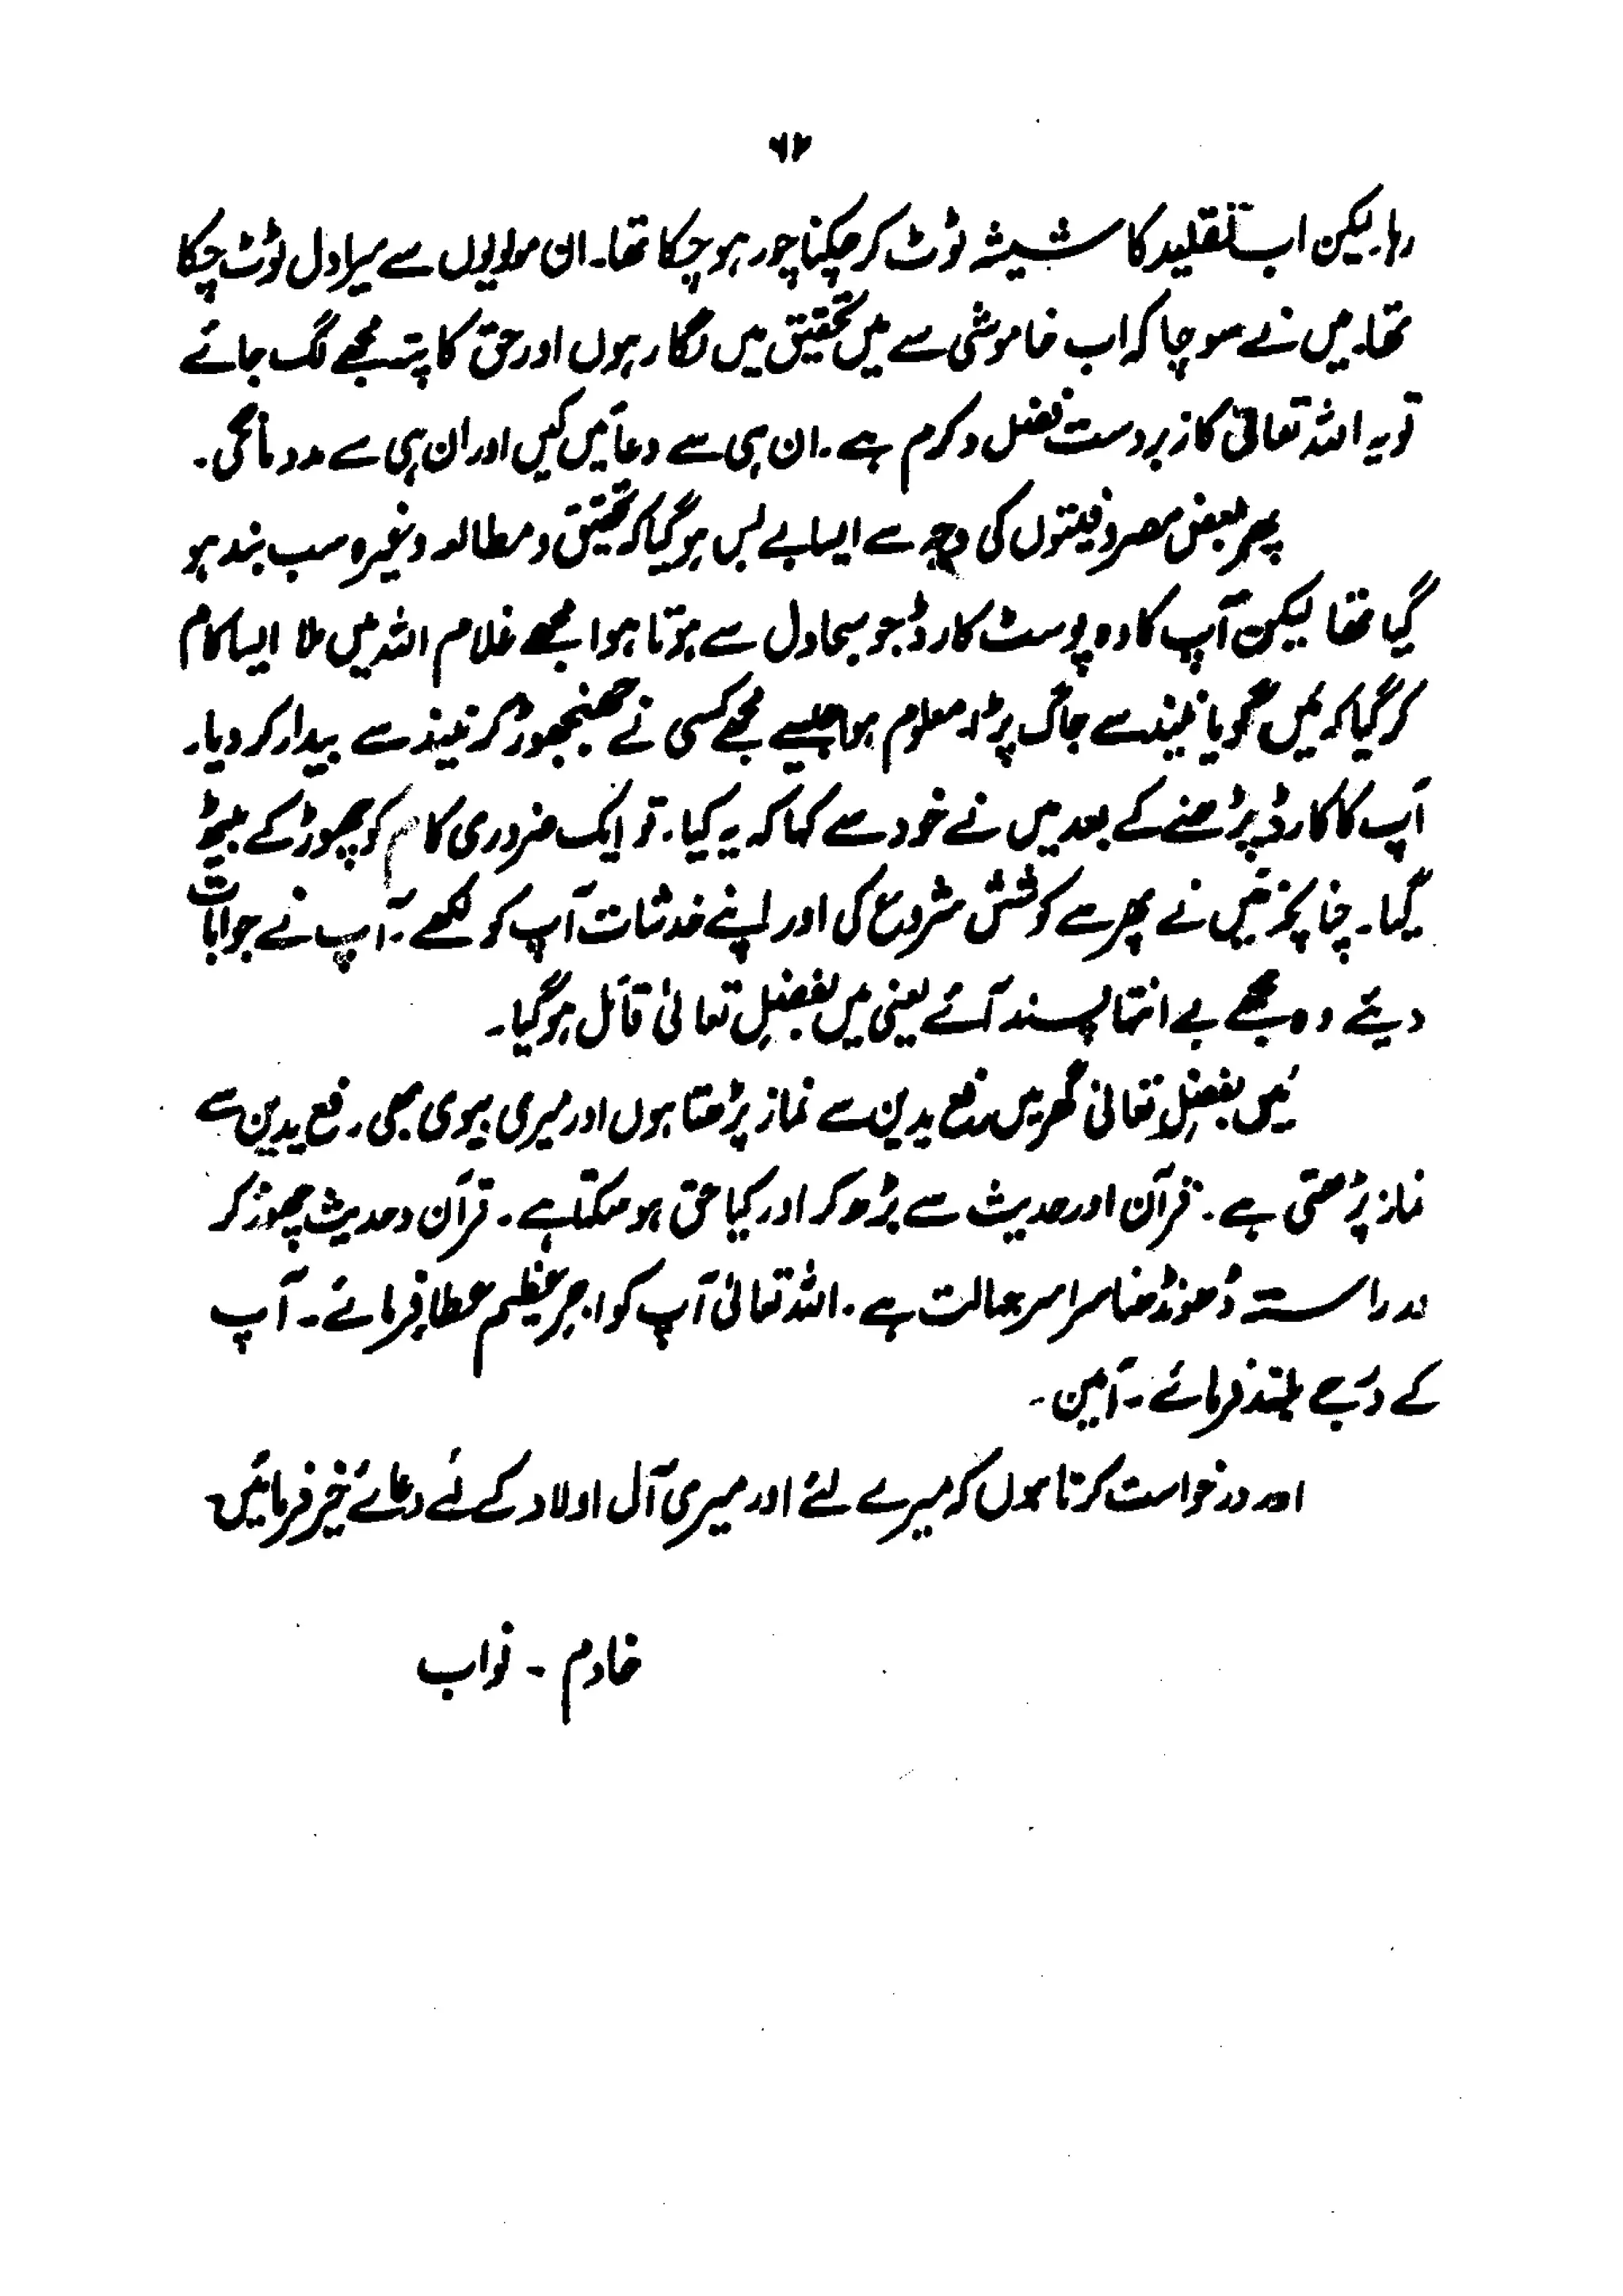 ۶۲
رہا۔ لیکن اب تقلید کا شیشہ ٹوٹ کر چکنا چور ہو چکا تھا۔ ان مولویوں سے میرا دل ٹوٹ چکا
تھا۔ میں نے سوچا کہ اب خاموشی سے میں تحقیق میں لگا رہوں اور حق کا پتہ مجھے لگ جائے
تو یہ اللہ تعالیٰ کا زبردست فضل و کرم ہے۔ ان ہی سے دعائیں کیں اور ان ہی سے مدد مانگی۔
پھر بعض مصروفیتوں کی وجہ سے ایسا بے بس ہو گیا کہ تحقیق و مطالعہ وغیرہ سب بند ہو
گیا تھا لیکن آپ کا وہ پوسٹ کارڈ جو سجاول سے ہوتا ہوا مجھے غلام اللہ میں ملا ایسا کام
کر گیا کہ میں گویا نیند سے جاگ پڑا۔ معلوم ہوا جیسے مجھے کسی نے جھنجھوڑ کر نیند سے بیدار کر دیا۔
آپ کا کارڈ پڑھنے کے بعد میں نے خود سے کہا کہ یہ کیا۔ تو ایک ضروری کام کو چھوڑ کے بیٹھ
گیا۔ چنانچہ میں نے پھر سے کوشش شروع کی اور اپنے خدشات آپ کو لکھے۔ آپ نے جوابات
دیئے وہ مجھے بے انتہا پسند آئے یعنی میں بفضلِ تعالیٰ قائل ہو گیا۔
میں بفضلِ تعالیٰ گھر میں رفع یدین سے نماز پڑھتا ہوں اور میری بیوی بھی رفع یدین سے
نماز پڑھتی ہے۔ قرآن اور حدیث سے بڑھ کر اور کیا حق ہو سکتا ہے۔ قرآن و حدیث چھوڑ کر
اور راستہ ڈھونڈھنا سراسر جہالت ہے۔ اللہ تعالیٰ آپ کو اجرِ عظیم عطا فرمائے۔ آپ
کے درجے بلند فرمائے۔ آمین۔
اور درخواست کرتا ہوں کہ میرے لئے اور میری آل اولاد کے لئے دعائے خیر فرمائیں
خادم ۔ نواب